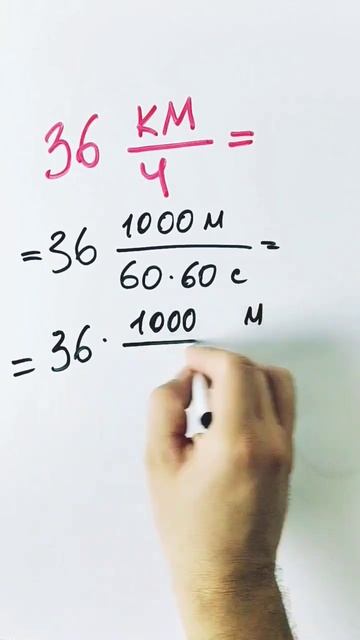 36 км/ч =
= 36 1000 м/60·60 с =
= 36 · 1000 м